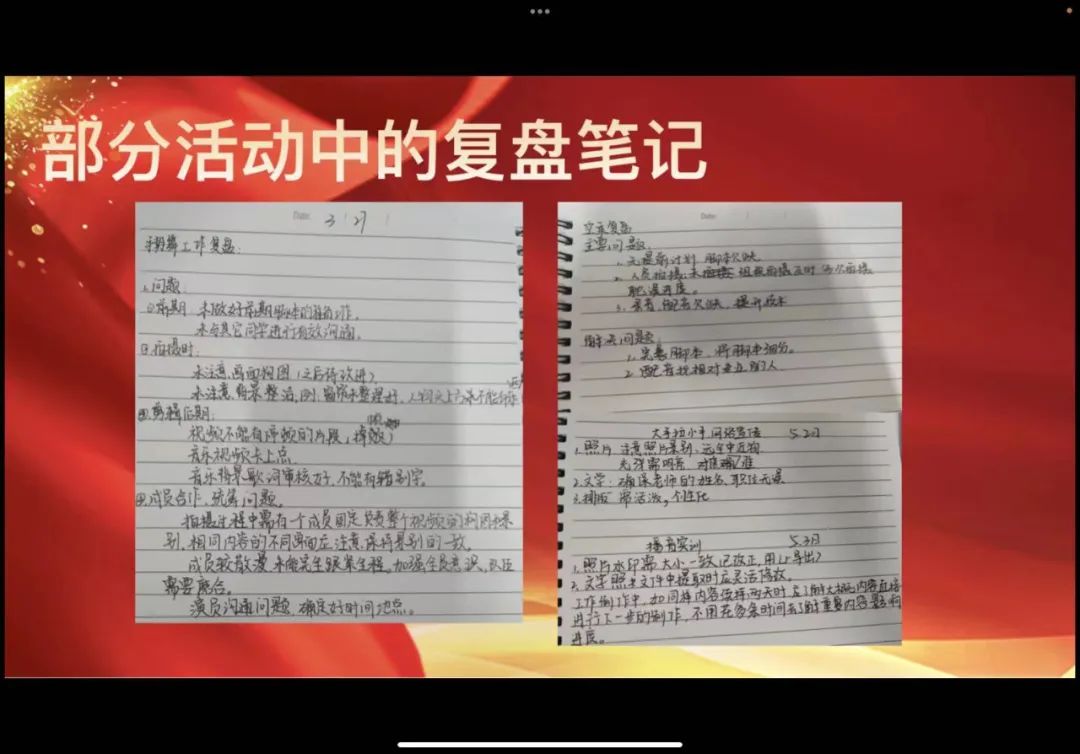 部分活动中的复盘笔记
Date:
3 27
工作复盘:
问题:
前期: 未做好前期脚本的准备工作。
未与其它同学进行有效沟通。
拍摄时:
未注意画面构图(之后待改进)
未注意背景整洁,例:窗帘未整理好,
剪辑后期:
视频不能有掉帧的片段,
音乐视频卡上点。
音乐背景歌词审核好,不能有错别字。
成员合作,统筹问题。
拍摄过程中需有一个成员固定负责整个视频的构图和景
别,相同内容的不同画面应注意保持景别的一致。
成员较散漫,未能完全跟某全程,加强全员意识,
需要磨合。
演员沟通问题,确定好时间地点。
Date:
复盘
主要问题:
1. 无提前计划 脚本欠缺
2. 人员拍摄
耽误进度。
3. 配音欠缺,提升技术
解决问题:
1. 完善脚本,将脚本细分。
2. 配音找相对专业的人
大手拉小手网络宣传 5.2日
1.照片 注意照片景别,远全中近特
光线需明亮 对焦确准
2.文字: 确保老师的姓名、职位无误
3.排版 需活泼,个性化
播音实训 5.3日
1.照片水印需大小一致(已改正,用Lr导出)
2.文字照文件中提取时应灵活修改。
工作制作中,如同样内容
进行下一步的制作,不用花多余时间去了解重复内容
进度。